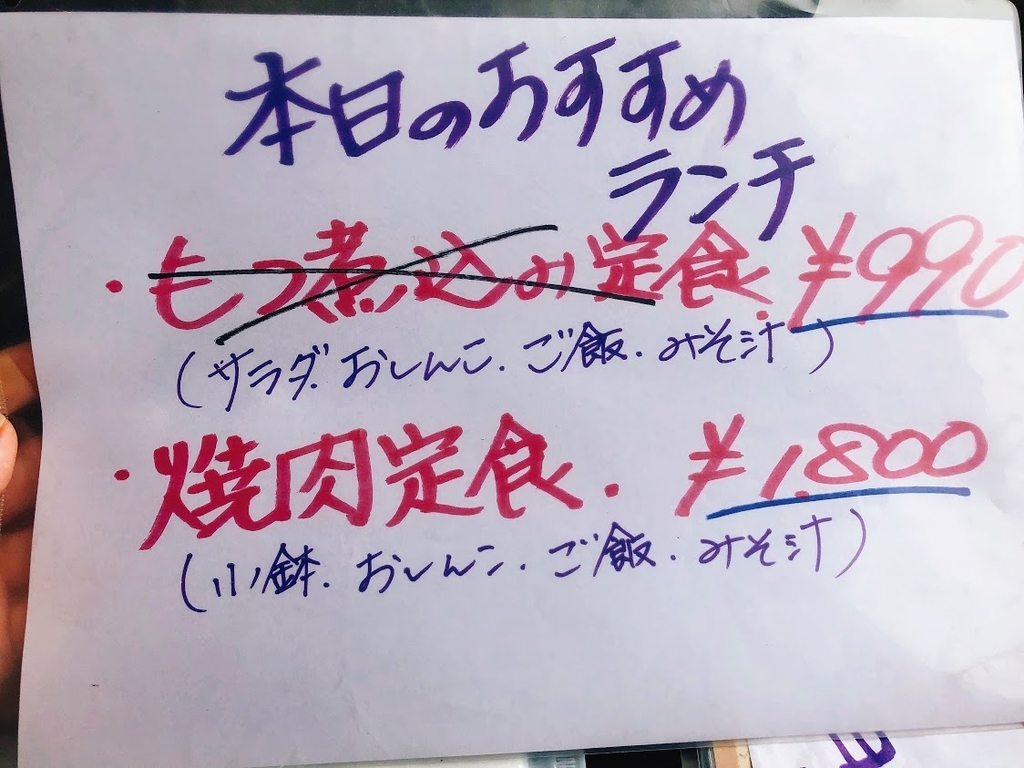 本日のおすすめ
ランチ
・もつ煮込み定食. ¥990
(サラダ. おしんこ. ご飯. みそ汁)
・焼肉定食. ¥1,800
(小鉢. おしんこ. ご飯. みそ汁)